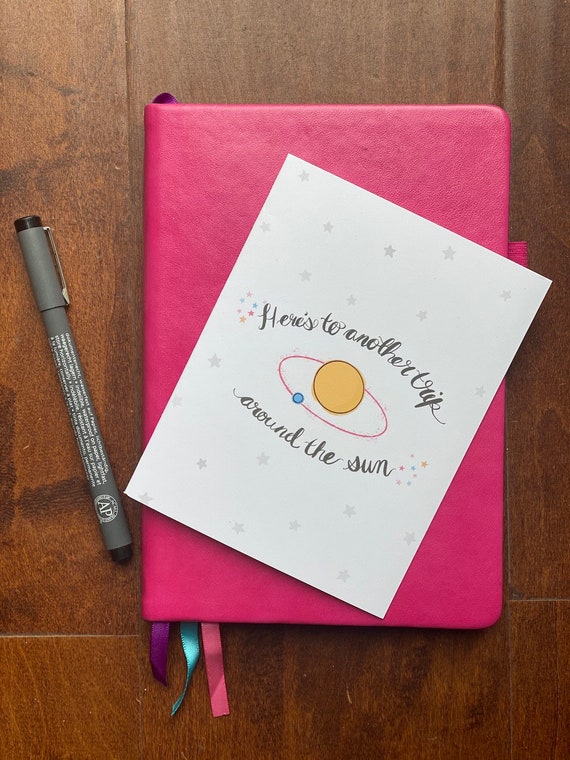 Here's to another trip
around the sun
AP